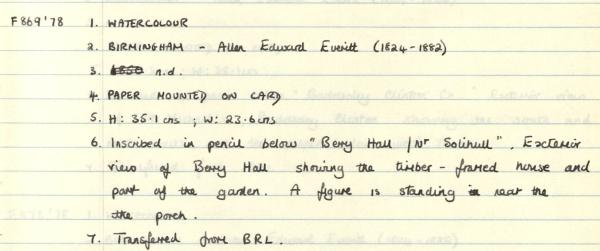 F869'78 1. WATERCOLOUR
2. BIRMINGHAM - Allen Edward Everitt (1824-1882)
3. 1850 n.d.
4. PAPER MOUNTED ON CARD
5. H: 35.1 cms ; W: 23.6 cms
6. Inscribed in pencil below "Berry Hall / Nr Solihull". Exterior
view of Berry Hall showing the timber-framed house and
part of the garden. A figure is standing in near the
the porch.
7. Transferred from BRL.